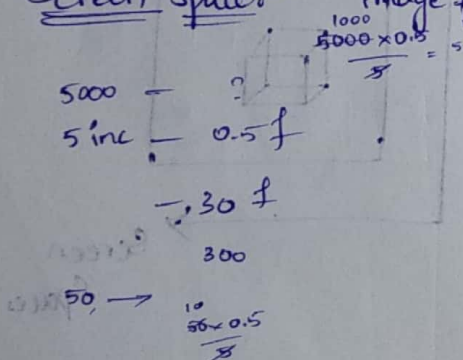 Screen Space
Image
5000 — ?
1000
5000 × 0.5
5
=
5 inc — 0.5 f
— 30 f
300
50 →
10
50 × 0.5
5